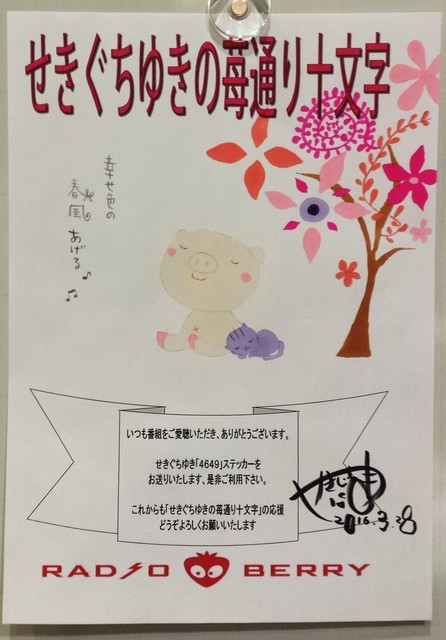 せきぐちゆきの苺通り十文字
幸せ色の
春風
あげる♪
♫
いつも番組をご愛聴いただき、ありがとうございます。
せきぐちゆき「4649」ステッカーを
お送りいたします、是非ご利用下さい。
これからも「せきぐちゆきの苺通り十文字」の応援
どうぞよろしくお願いいたします
2016.3.28
RADIO BERRY